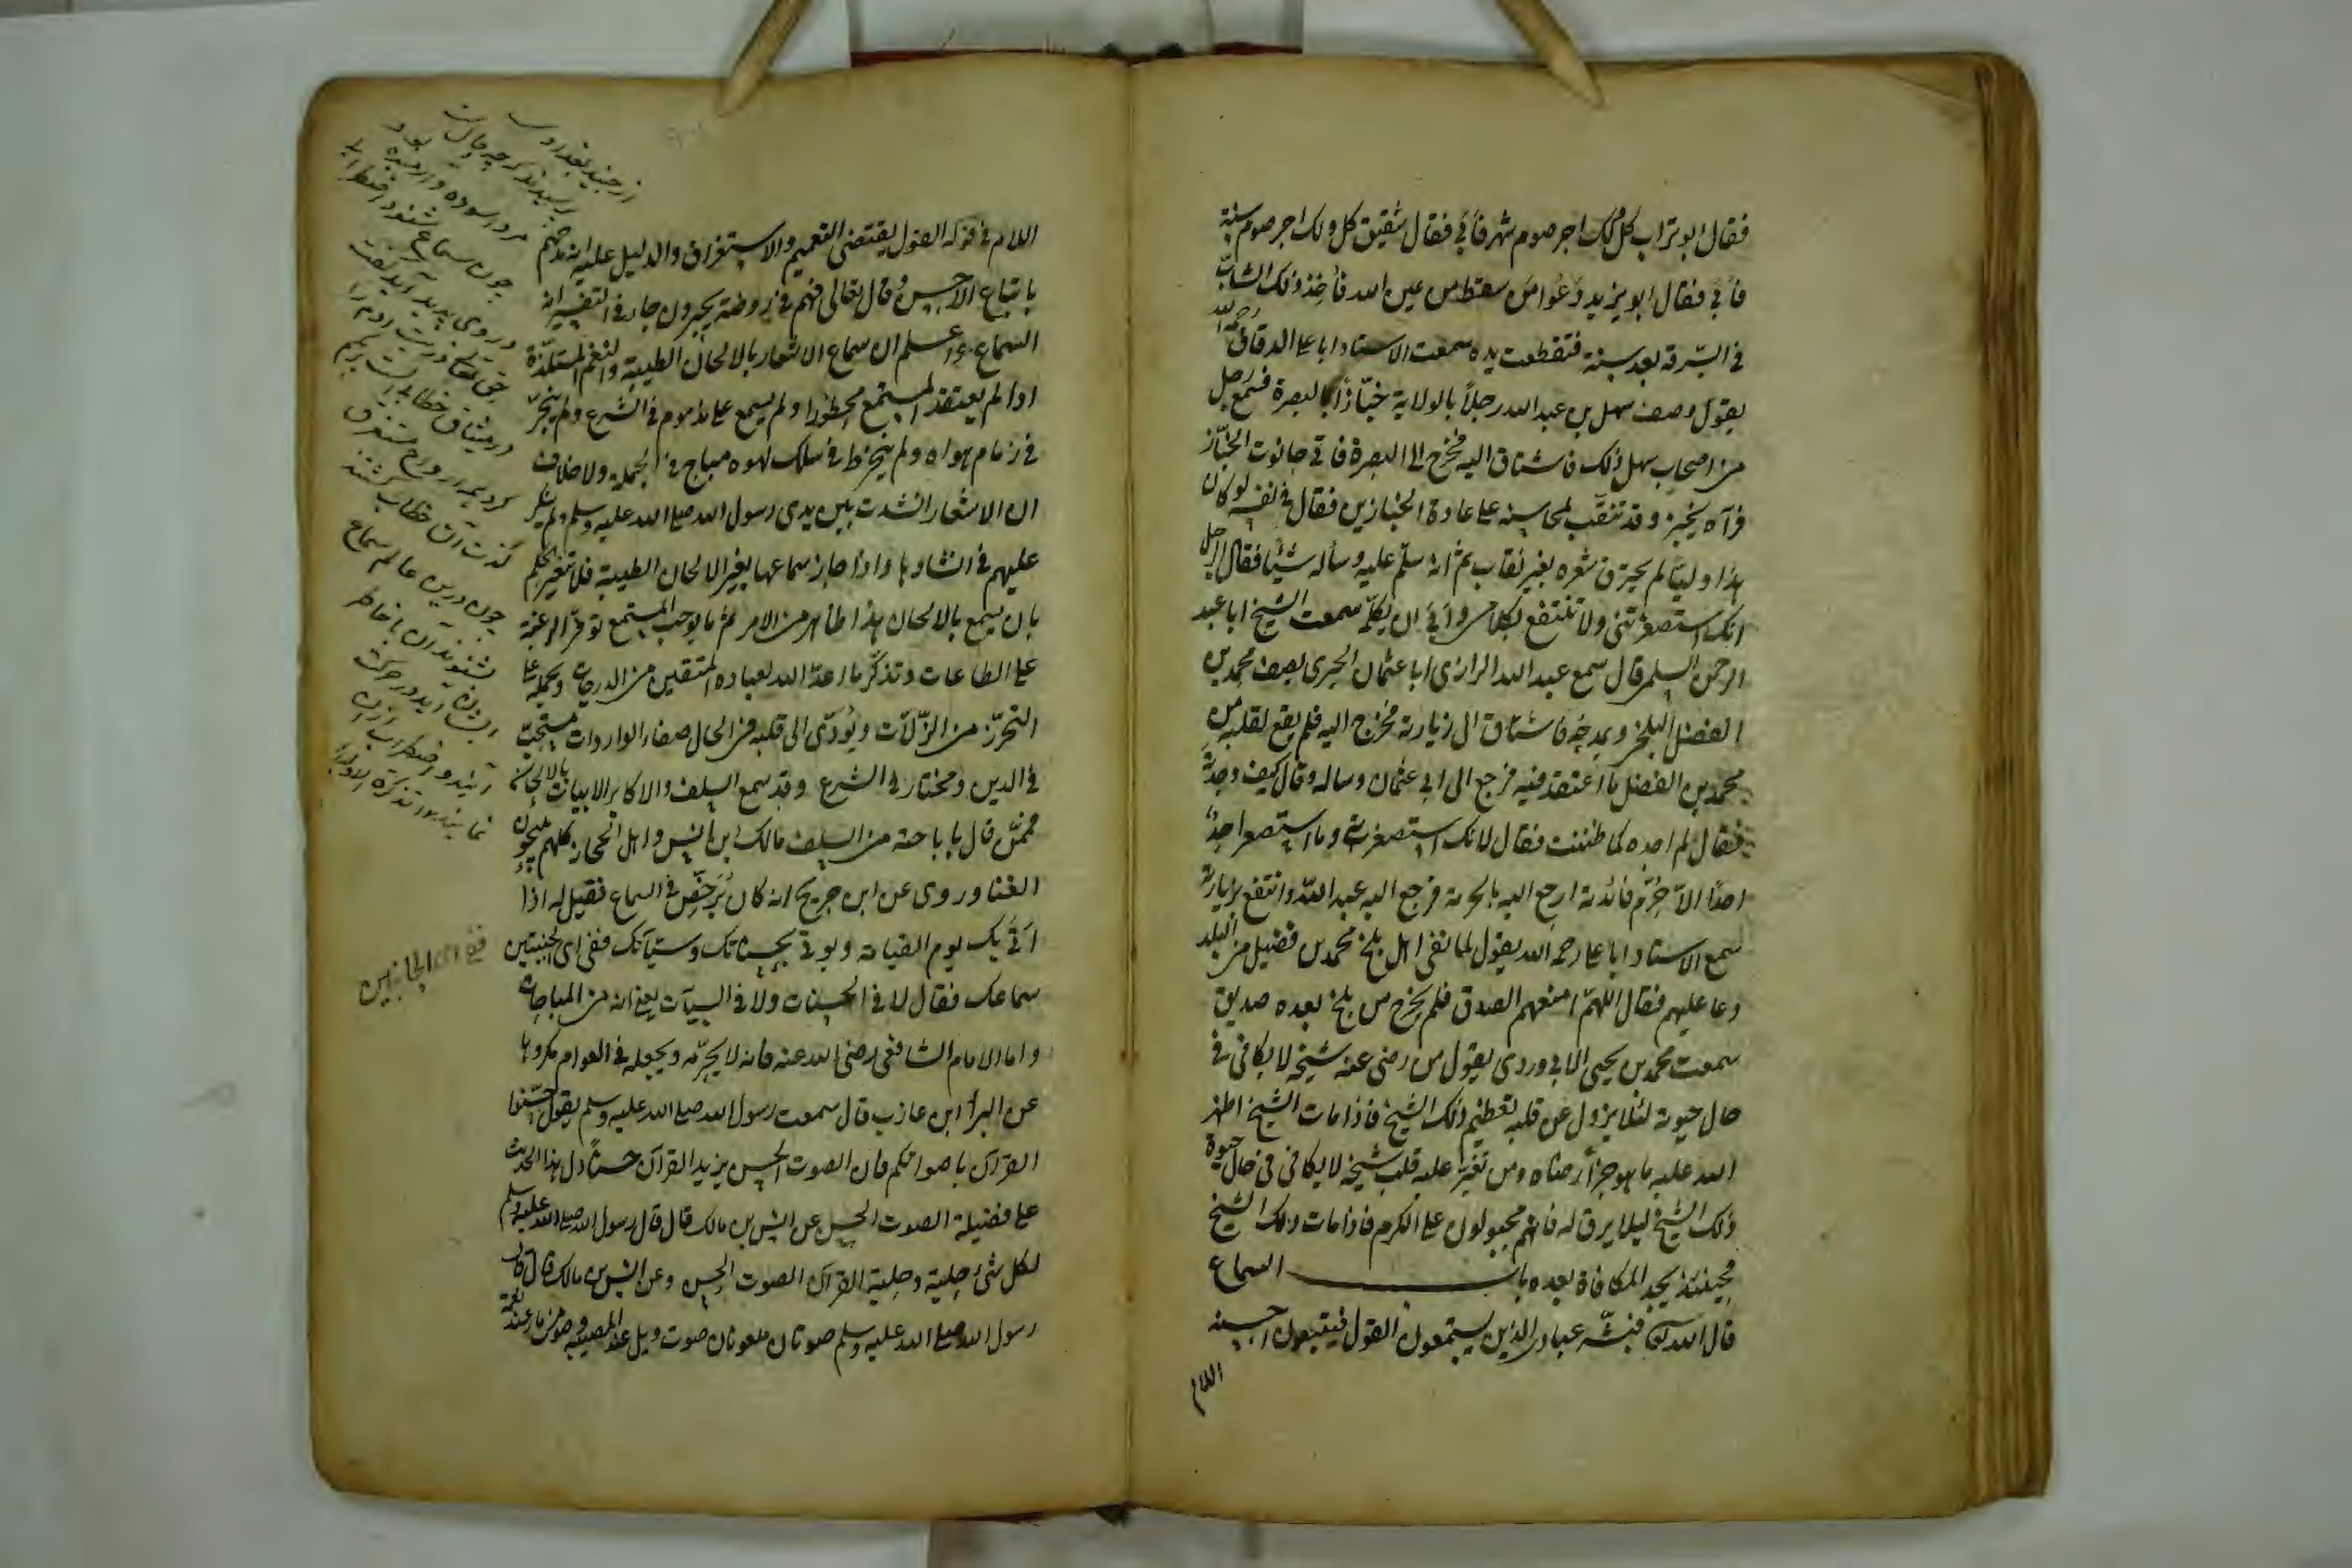 فقال ابو تراب كل ولك اجر صوم شهر فأبى فقال شقيق كل ولك اجر صوم سنة
فأبى فقال ابو يزيد دعوا من سقط من عين الله فأخذ ذلك الشاب
في السرقة بعد سنة فتقطعت يده سمعت الاستاد ابا على الدقاق رحمه الله
يقول وصف سهل بن عبد الله رجلاً بالولاية خبّازاً بالبصرة فسمع رجل
من اصحاب سهل ذلك فاشتاق اليه فخرج الى البصرة فاتى حانوت الخبّاز
فرآه يخبز وقد تنقّب لمحاسنه على عادة الخبازين فقال في نفسه لو كان
هذا وليّاً لم يحترق شعره بغير نقاب ثم انه سلّم عليه وسأله شيئا فقال الرجل
انك استصغرتنى ولا تنتفع بكلامى وأبى ان يكلّمه سمعت الشيخ ابا عبد
الرحمن السلمى قال سمع عبد الله الرازى ابا عثمان الحيرى يصف محمد بن
الفضل البلخى ويمدحه فاشتاق الى زيارته فخرج اليه فلم يقع بقلبه من
محمد بن الفضل ما اعتقد فيه فرجع الى ابى عثمان وساله وقال كيف وجدته
فقال لم اجده كما ظننت فقال لانك استصغرته وما استصغر احد
احدا الا حُرِم فائدته ارجع اليه بالحرمة فرجع اليه عبد الله وانتفع بزيارته
سمع الاستاد ابا على رحمه الله يقول لما نفى اهل بلخ محمد بن فضيل من البلد
دعا عليهم فقال اللهمّ امنعهم الصدق فلم يخرج من بلخ بعده صديق
سمعت محمد بن يحيى الابى وردى يقول من رضى عنه شيخه لا يكافى في
حال حيوته لئلا يزول عن قلبه تعظيم ذلك الشيخ فاذا مات الشيخ اظهر
الله عليه ما هو جزأ رضاه ومن تغيّر عليه قلب شيخه لا يكافى في حال حيوة
ذلك الشيخ ليلا يرق له فانهم مجبولون على الكرم فاذا مات ذلك الشيخ
فحينئذ يجد المكافاة بعده باب السماع
قال الله تعالى فبشّر عبادى الذين يستمعون القول فيتبعون احسنه
اللام
اللام في قوله القول يقتضى التعميم والاستغراق والدليل عليه انه مدحهم
باتباع الاحسن وقال تعالى فهم في روضة يحبرون جاء في التفسير انه
السماع واعلم ان سماع الاشعار بالالحان الطيبة والنغم المستلذّة
اذا لم يعتقد المستمع محظورا ولم يسمع على مذموم في الشرع ولم ينجرّ
في زمام هواه ولم ينخرط في سلك لهوه مباح في الجملة ولا خلاف
ان الاشعار انشدت بين يدى رسول الله صلى الله عليه وسلم ولم ينكر
عليهم في انشادها واذا جاز سماعها بغير الالحان الطيبة فلا تغير الحكم
بان يسمع بالالحان هذا ظاهر من الامر ثم ما يوجب المستمع توفر الرغبة
على الطاعات وتذكّر ما اعدّ الله لعباده المتقين من الدرجات ويحمله على
التحرّز من الزّلّات ويؤدّى الى قلبه في الحال صفاء الواردات مستحبّ
في الدين ومختار في الشرع وقد سمع السلف والاكابر الابيات بالالحان
فممّن قال باباحته من السلف مالك ابن انس واهل الحجاز كلهم يبيحون
الغنا وروى عن ابن جريج انه كان يُرخّص في السماع فقيل له اذا
اتى بك يوم القيامة ويوتى بحسناتك وسيّآتك ففى اى الجنبتين
سماعك فقال لا في الحسنات ولا في السيآت يعنى انه من المباحات
واما الامام الشافعى رضى الله عنه فانه لا يحرّمه ويجعله في العوام مكروها
عن البرأ ابن عازب قال سمعت رسول الله صلى الله عليه وسلم يقول حسّنوا
القرآن باصواتكم فان الصوت الحسن يزيد القرآن حسناً دل هذا الحديث
على فضيلة الصوت الحسن عن انس بن مالك قال قال رسول الله صلى الله عليه وسلم
لكل شئ حلية وحلية القرآن الصوت الحسن وعن انس بن مالك قال قال
رسول الله صلى الله عليه وسلم صوتان ملعونان صوت ويل عند المصيبة وصوت مزمار عند نغمة
از جنيد بغدادى
پرسيدند كه چه حالست
مرد آسوده و آرميده بود
چون سماع شنود اضطراب
در وى پديد آيد گفت
حق تعالى ذريت آدم را
در ميثاق خطاب الست بربكم
كرد همه ارواح مستغرق
لذت آن خطاب گشتند
چون درين عالم سماع
بشنوند آن با خاطر
ايشان آيد در حركت
آيند و اضطراب ازان
نمايند تذكرة الاوليا
ففى اى الجانبين